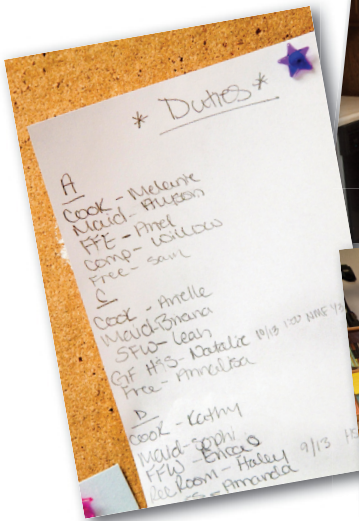 * Duties *
A
Cook - Melanie
Maid - Allison
FFE - Ariel
Comp - Willow
Free - Sam
C
Cook - Arielle
Maid - Briana
SFW - Leah
GF H's - Natalie 10/13
Free - Annalisa
D
Cook - Kathy
Maid - Sophi
FFW - Erica
Rec Room - Haley 9/13
Amanda